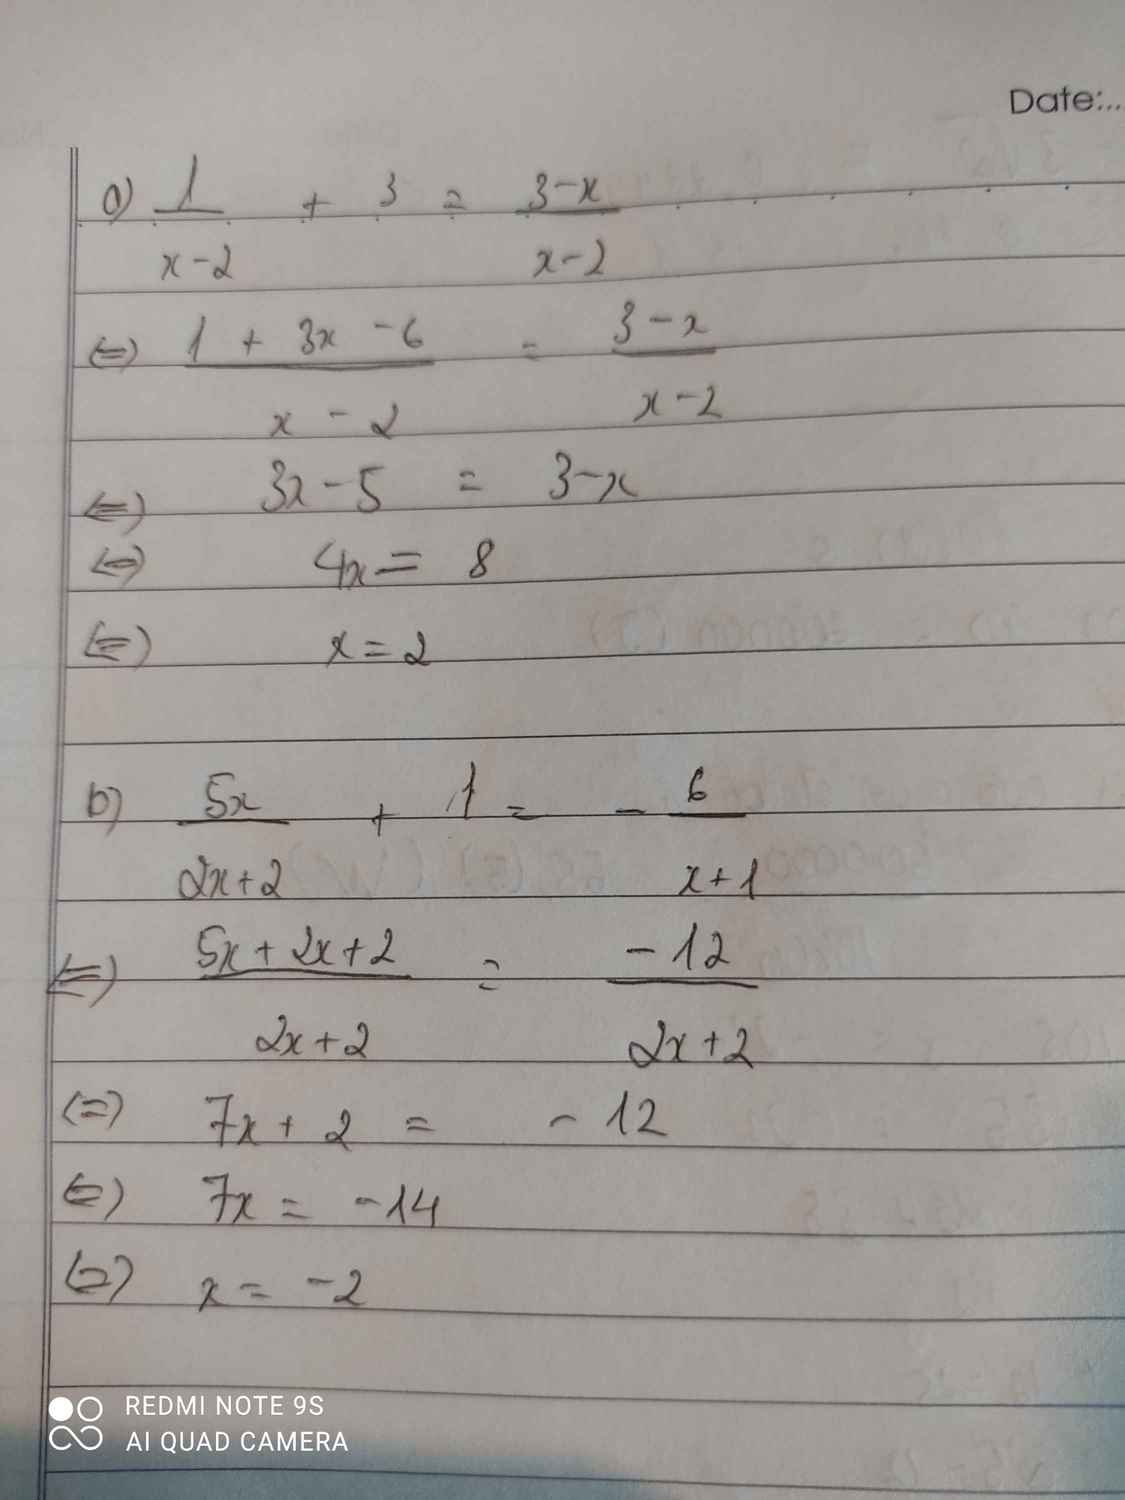 Date:...
a) 1/(x-2) + 3 = (3-x)/(x-2)
(=) (1 + 3x - 6)/(x - 2) = (3-x)/(x-2)
(=) 3x - 5 = 3-x
(=) 4x = 8
(=) x = 2
b) 5x/(2x+2) + 1 = - 6/(x+1)
(=) (5x + 2x + 2)/(2x+2) = -12/(2x+2)
(=) 7x + 2 = -12
(=) 7x = -14
(=) x = -2
REDMI NOTE 9S
AI QUAD CAMERA